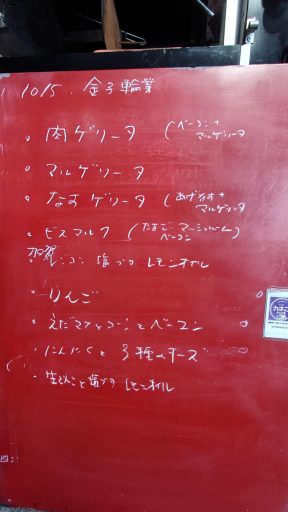 10/5 金子輪業
・肉ゲリータ (ベーコン+マルゲリータ)
・マルゲリータ
・なすゲリータ (あげなす+マルゲリータ)
・ビスマルク (たまご マッシュルーム ベーコン)
塩ブタ レモンオイル
・りんご
・えだマメとコーンとベーコン
・にんにくと3種のチーズ
塩ブタ レモンオイル